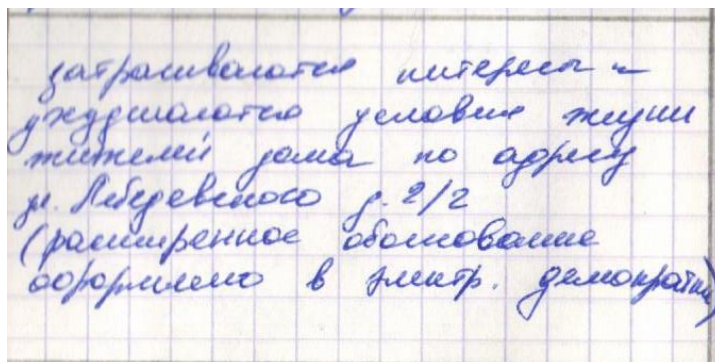 затрагиваются интересы и
ухудшаются условия жизни
жителей дома по адресу
ул. Лебедевского д. 2/2
(расширенное обоснование
оформлено в электр. демократии)